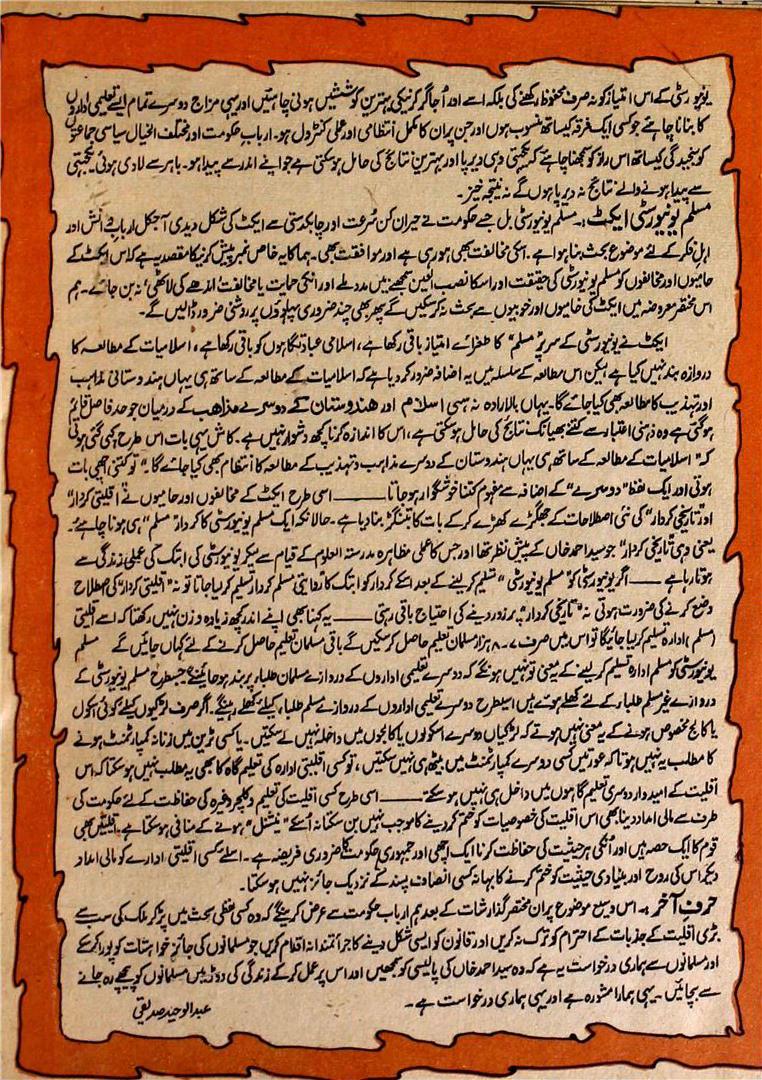 یونیورسٹی کے اس امتیاز کو نہ صرف محفوظ رکھنے کی بلکہ اسے اور اُجاگر کرنیکی بہترین کوششیں ہونی چاہئیں اور یہی مزاج دوسرے تمام ایسے تعلیمی اداروں
کا بنانا چاہئے جو کسی ایک فرقہ کیساتھ منسوب ہوں اور جن پر ان کا مکمل انتظامی اور عملی کنٹرول ہو۔ اربابِ حکومت اور مختلف الخیال سیاسی جماعتوں
کو سنجیدگی کیساتھ اس راز کو سمجھنا چاہئے کہ یکجہتی وہی دیرپا اور بہترین نتائج کی حامل ہوسکتی ہے جو اپنے اندر سے پیدا ہو۔ باہر سے لادی ہوئی یکجہتی
سے پیدا ہونے والے نتائج نہ دیرپا ہوں گے نہ نتیجہ خیز۔
مسلم یونیورسٹی ایکٹ:۔ مسلم یونیورسٹی بل جسے حکومت نے حیران کن سُرعت اور چابکدستی سے ایکٹ کی شکل دیدی آجکل اربابِ دانش اور
اہلِ فکر کے لئے موضوع بحث بنا ہوا ہے۔ اسکی مخالفت بھی ہورہی ہے اور موافقت بھی۔ ہمارا یہ خاص نمبر پیش کرنیکا مقصد یہ ہے کہ اس ایکٹ کے
حامیوں اور مخالفوں کو مسلم یونیورسٹی کی حقیقت اور اسکا نصب العین سمجھنے میں مدد ملے اور انکی حمایت یا مخالفت اندھے کی لاٹھی نہ بن جائے۔ ہم
اس مختصر معروضہ میں ایکٹ کی خامیوں اور خوبیوں سے بحث نہ کرسکیں گے پھر بھی چند ضروری پہلوؤں پر روشنی ضرور ڈالیں گے۔
ایکٹ نے یونیورسٹی کے سر پر "مسلم" کا طغرائے امتیاز باقی رکھا ہے، اسلامی عبادتگاہوں کو باقی رکھا ہے، اسلامیات کے مطالعہ کا
دروازہ بند نہیں کیا ہے لیکن اس مطالعہ کے سلسلہ میں یہ اضافہ ضرور کردیا ہے کہ اسلامیات کے مطالعہ کے ساتھ ہی یہاں ہندوستانی مذاہب
اور تہذیب کا مطالعہ بھی کیا جائے گا۔ یہاں بالارادہ نہ سہی اسلام اور ہندوستان کے دوسرے مذاہب کے درمیان جو حد فاصل قائم
ہوگئی ہے وہ ذہنی اعتبار سے کتنے بھیانک نتائج کی حامل ہوسکتی ہے، اس کا اندازہ کرنا کچھ دشوار نہیں ہے۔ کاش یہی بات اس طرح کہی گئی ہوتی
کہ "اسلامیات کے مطالعہ کے ساتھ ہی یہاں ہندوستان کے دوسرے مذاہب و تہذیب کے مطالعہ کا انتظام بھی کیا جائے گا۔" تو کتنی اچھی بات
ہوتی اور ایک لفظ "دوسرے" کے اضافہ سے مفہوم کتنا خوشگوار ہوجاتا ــــــ اسی طرح ایکٹ کے مخالفوں اور حامیوں نے "اقلیتی کردار"
اور "تاریخی کردار" کی نئی اصطلاحات کے جھگڑے کھڑے کرکے بات کا بتنگڑ بنادیا ہے۔ حالانکہ ایک مسلم یونیورسٹی کا کردار "مسلم" ہی ہونا چاہئے۔
یعنی وہی تاریخی کردار" جو سید احمد خاں کے پیش نظر تھا اور جس کا عملی مظاہرہ مدرستہ العلوم کے قیام سے لیکر یونیورسٹی کی ابتک کی عملی زندگی سے
ہوتا رہا ہے ــــ اگر یونیورسٹی کو "مسلم یونیورسٹی" تسلیم کرلینے کے بعد اسکے کردار کو ابتک کا روایتی مسلم کردار تسلیم کرلیا جاتا تو نہ "اقلیتی کردار" کی اصطلاح
وضع کرنے کی ضرورت ہوتی نہ "تاریخی کردار" پر زور دینے کی احتیاج باقی رہتی ــــــ یہ کہنا بھی اپنے اندر کچھ زیادہ وزن نہیں رکھتا کہ اسے اقلیتی
(مسلم) ادارہ تسلیم کرلیا جائیگا تو اس میں صرف ۷-۸ ہزار مسلمان تعلیم حاصل کرسکیں گے باقی مسلمان تعلیم حاصل کرنے کے لئے کہاں جائیں گے مسلم
یونیورسٹی کو مسلم ادارہ تسلیم کرلینے کے معنی تو نہیں ہونگے کہ دوسرے تعلیمی اداروں کے دروازے مسلمان طلباء پر بند ہوجائینگے جسطرح مسلم یونیورسٹی کے
دروازے غیر مسلم طلباء کے لئے کھلے ہوئے ہیں اسیطرح دوسرے تعلیمی اداروں کے دروازے مسلم طلباء کیلئے کھلے رہینگے۔ اگر صرف لڑکیوں کیلئے کوئی اسکول
یا کالج مخصوص ہونے کے یہ معنی نہیں ہوتے کہ لڑکیاں دوسرے اسکولوں یا کالجوں میں داخلہ نہیں لے سکتیں۔ یا کسی ٹرین میں زنانہ کمپارٹمنٹ ہونے
کا مطلب یہ نہیں ہوتا کہ عورتیں کسی دوسرے کمپارٹمنٹ میں بیٹھ ہی نہیں سکتیں، تو کسی اقلیتی ادارہ کی تعلیم گاہ کا بھی یہ مطلب نہیں ہوسکتا کہ اس
اقلیت کے امیدوار دوسری تعلیم گاہوں میں داخل ہی نہیں ہوسکتے ــــــ اسی طرح کسی اقلیت کی تعلیم و کلچر وغیرہ کی حفاظت کے لئے حکومت کی
طرف سے مالی امداد دینا بھی اس اقلیت کی خصوصیات کو ختم کردینے کا موجب نہیں بن سکتا نہ اُسکے "نیشنل" ہونے کے منافی ہوسکتا ہے۔ اقلیتیں بھی
قوم کا ایک حصہ ہیں اور اُنکی ہر حیثیت کی حفاظت کرنا ایک اچھی اور جمہوری حکومت کا ضروری فریضہ ہے۔ اسلئے کسی اقلیتی ادارے کو مالی امداد
دیکر اس کی روح اور بنیادی حیثیت کو ختم کرنے کا بہانہ کسی انصاف پسند کے نزدیک جائز نہیں ہوسکتا۔
حرفِ آخر:۔ اس وسیع موضوع پر ان مختصر گذارشات کے بعد ہم ارباب حکومت سے عرض کرینگے کہ وہ کسی لفظی بحث میں پڑکر ملک کی سب سے
بڑی اقلیت کے جذبات کے احترام کو ترک نہ کریں اور قانون کو ایسی شکل دینے کا جرأتمندانہ اقدام کریں جو مسلمانوں کی جائز خواہشات کو پورا کرسکے
اور مسلمانوں سے ہماری درخواست یہ ہے کہ وہ سید احمد خاں کی پالیسی کو سمجھیں اور اس پر عمل کرکے زندگی کی دوڑ میں مسلمانوں کو پیچھے رہ جانے
سے بچائیں۔ یہی ہمارا مشورہ ہے اور یہی ہماری درخواست ہے۔
عبدالوحید صدیقی